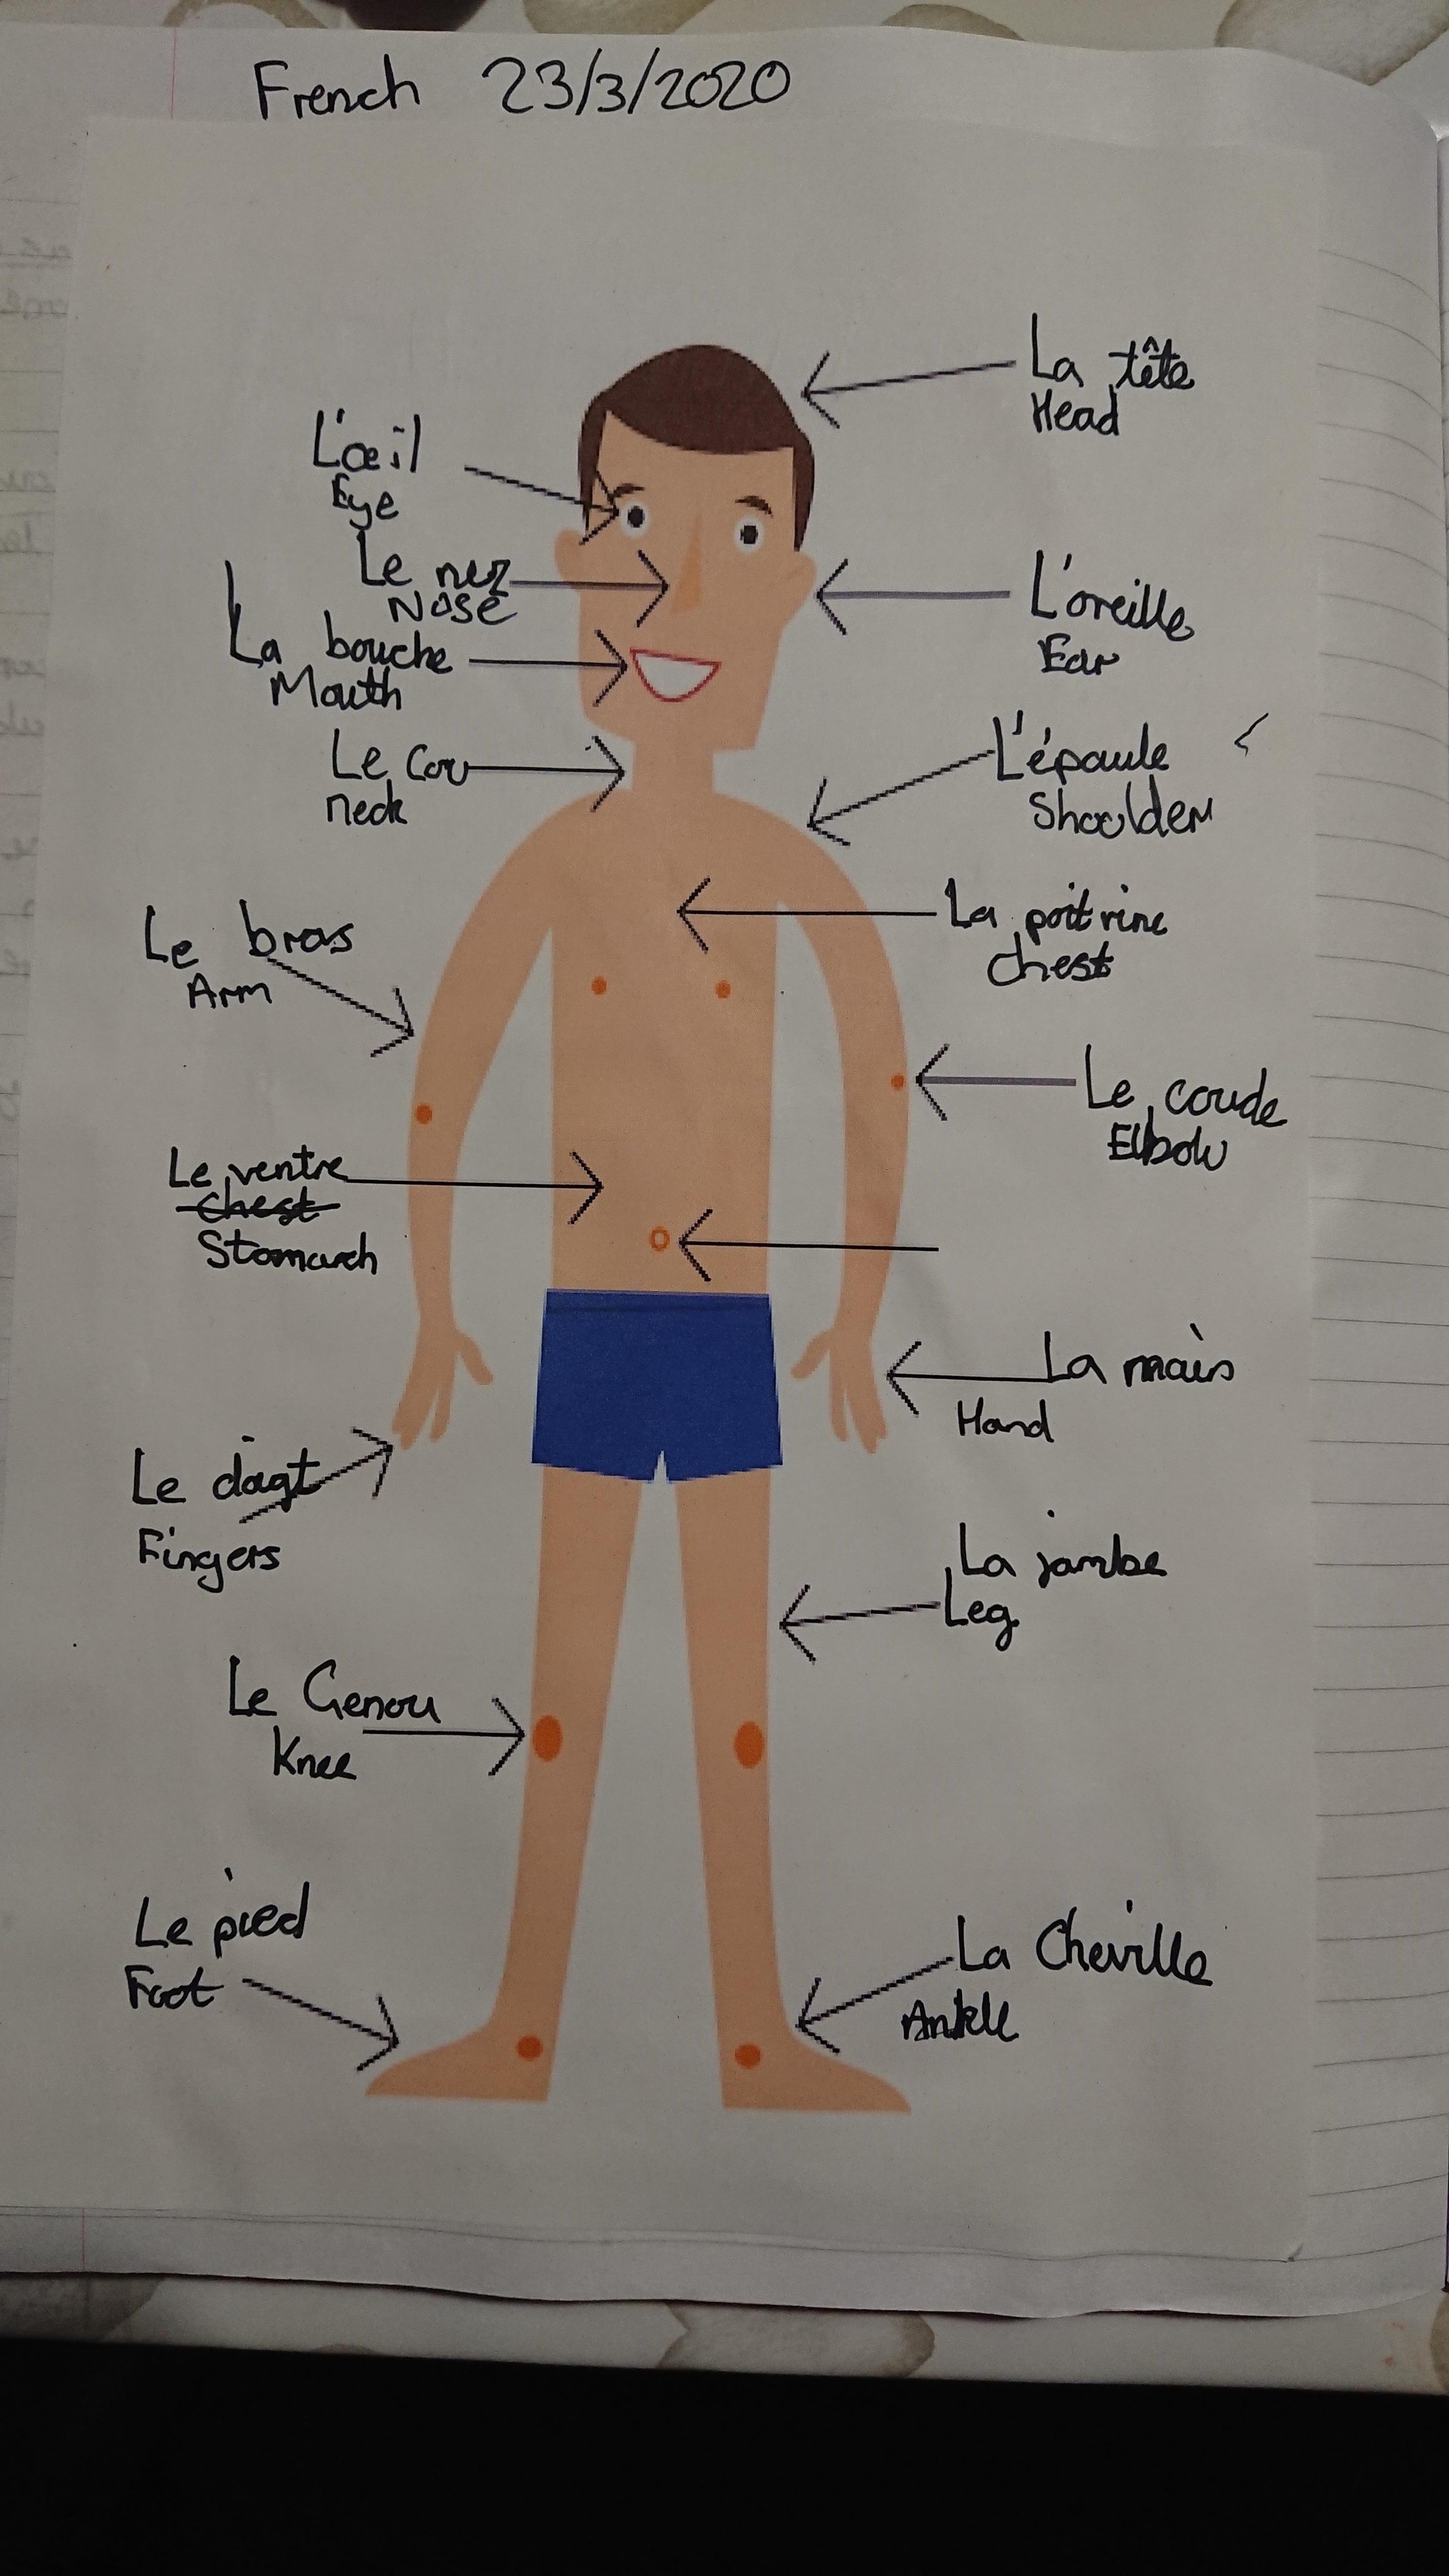 French 23/3/2020
La tête
Head
L'œil
Eye
Le nez
Nose
L'oreille
Ear
La bouche
Mouth
Le cou
neck
L'épaule
Shoulder
Le bras
Arm
La poitrine
chest
Le coude
Elbow
Le ventre
chest
Stomach
La main
Hand
Le
Fingers
La jambe
Leg
Le Genou
Knee
Le pied
Foot
La Cheville
Ankle